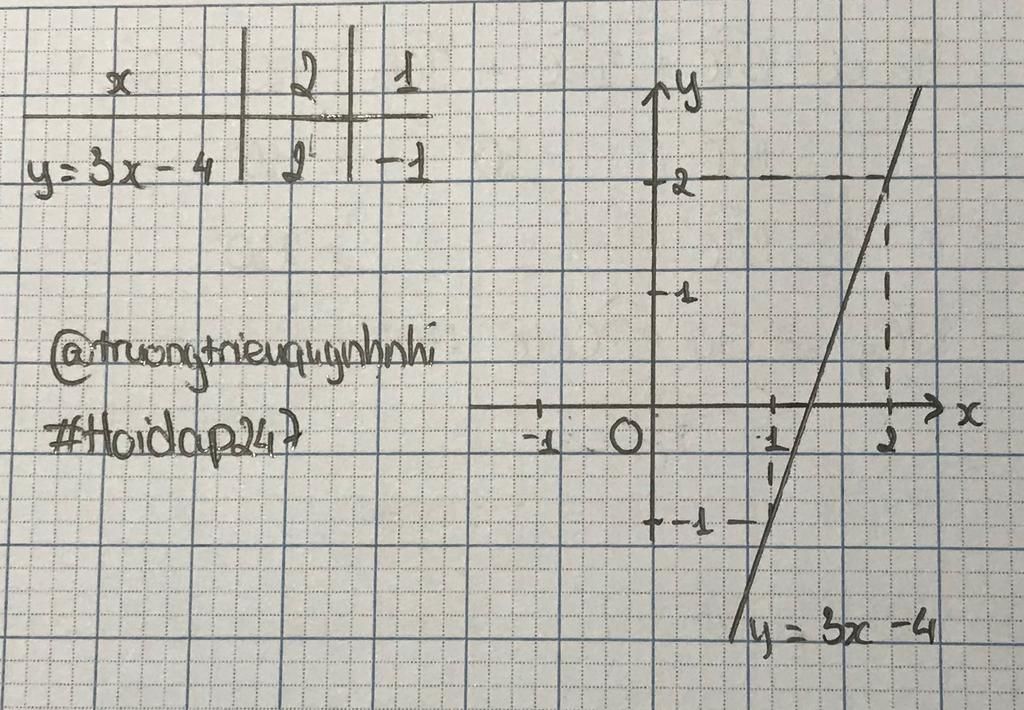 x 2 1
y = 3x - 4 2 -1
@truongtrieuquynhnhi
#Hoidap247
y
2
1
-1 O 1 2 x
-1
y = 3x - 4